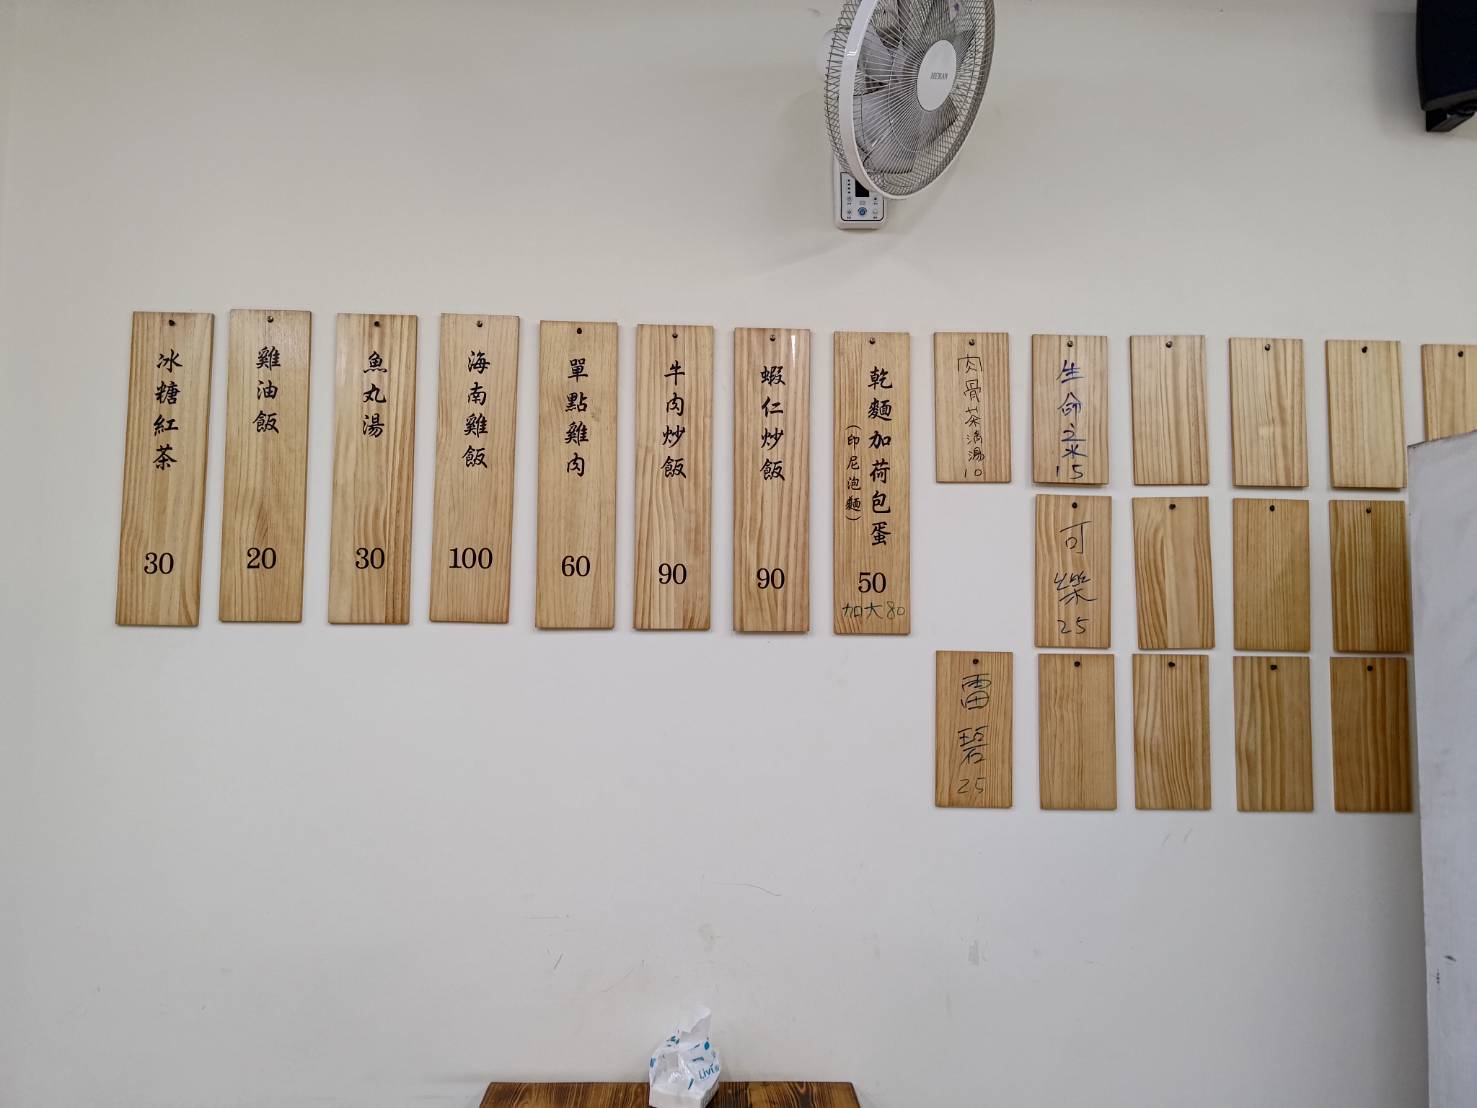 HERAN
冰糖紅茶
30
雞油飯
20
魚丸湯
30
海南雞飯
100
單點雞肉
60
牛肉炒飯
90
蝦仁炒飯
90
乾麵加荷包蛋
(印尼泡麵)
50
加大80
肉骨茶清湯
10
生命之水
15
可樂
25
雷碧
25
Livi